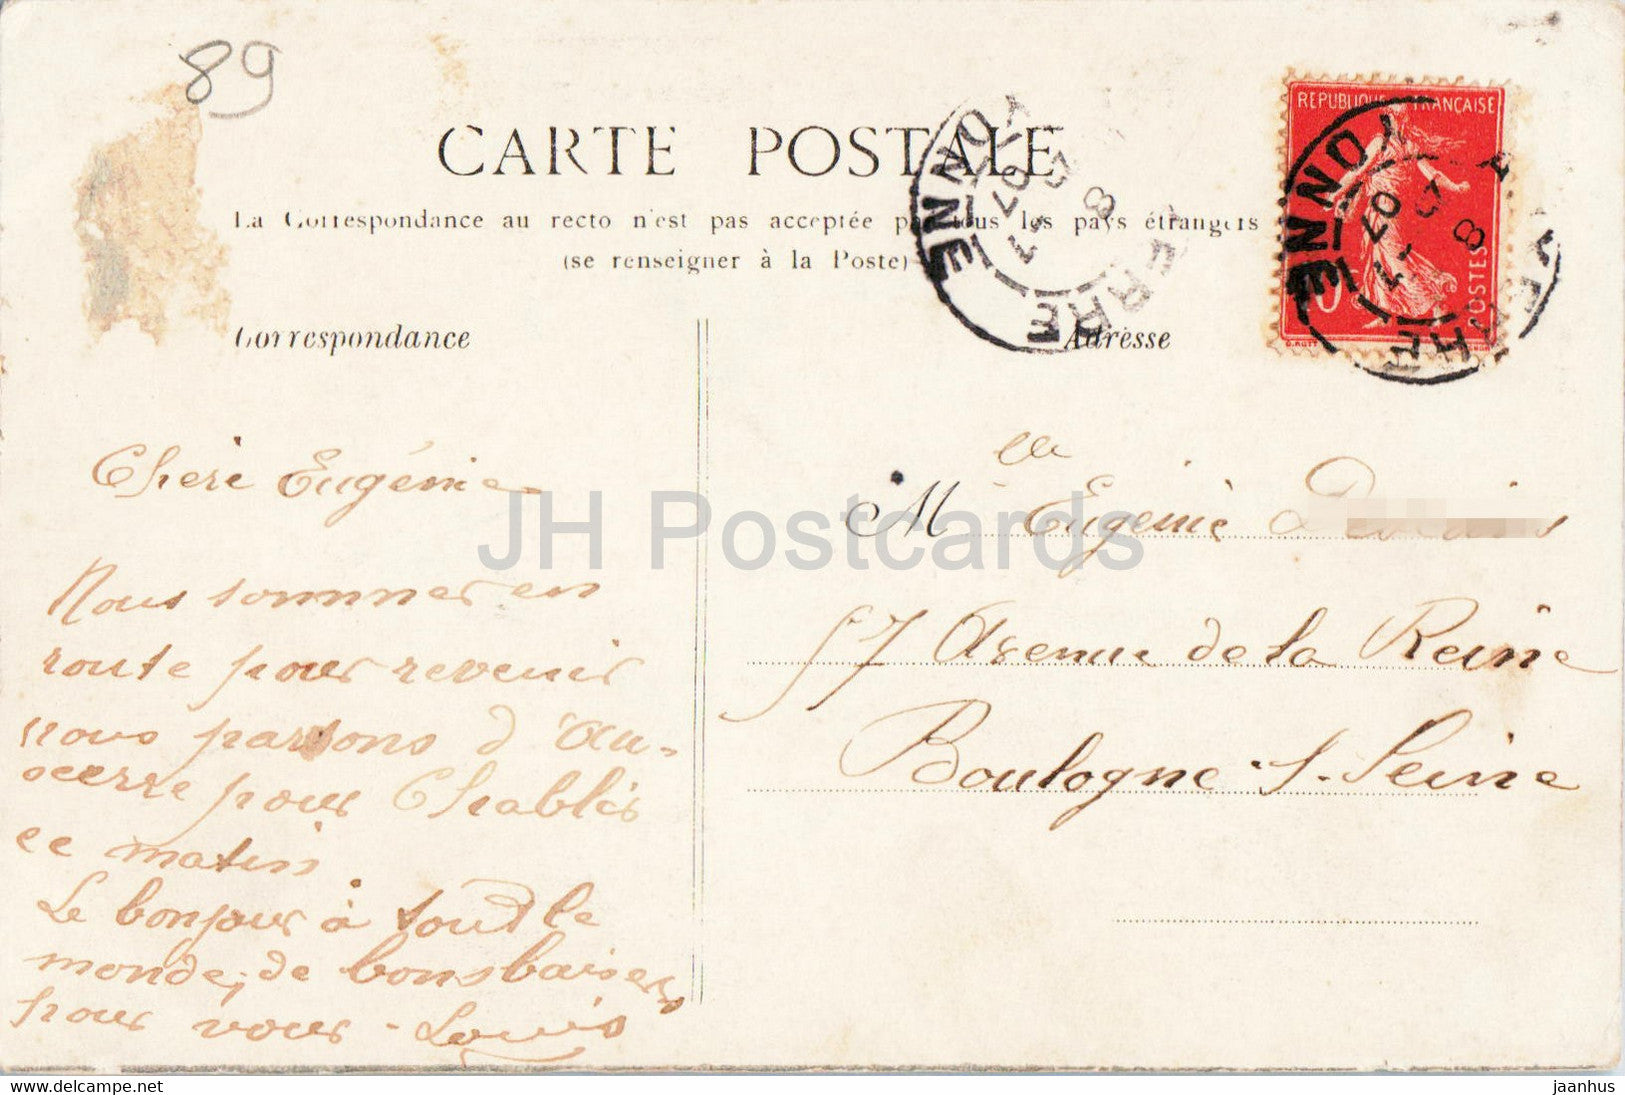 89
CARTE POSTALE
La Correspondance au recto n'est pas acceptée par tous les pays étrangers
(se renseigner à la Poste)
Correspondance
Adresse
REPUBLIQUE FRANÇAISE
POSTES
YONNE
AUXERRE
8
07
Cheré Eugénie
Nous sommes en
route pour revenir
nous partons d'Au-
xerre pour Chablis
ce matin
Le bonjour à tout le
monde, de bons baisers
pour vous - Louis
Mlle Eugénie
57 Avenue de la Reine
Boulogne s. Seine
JH Postcards
www.delcampe.net
jaanhus